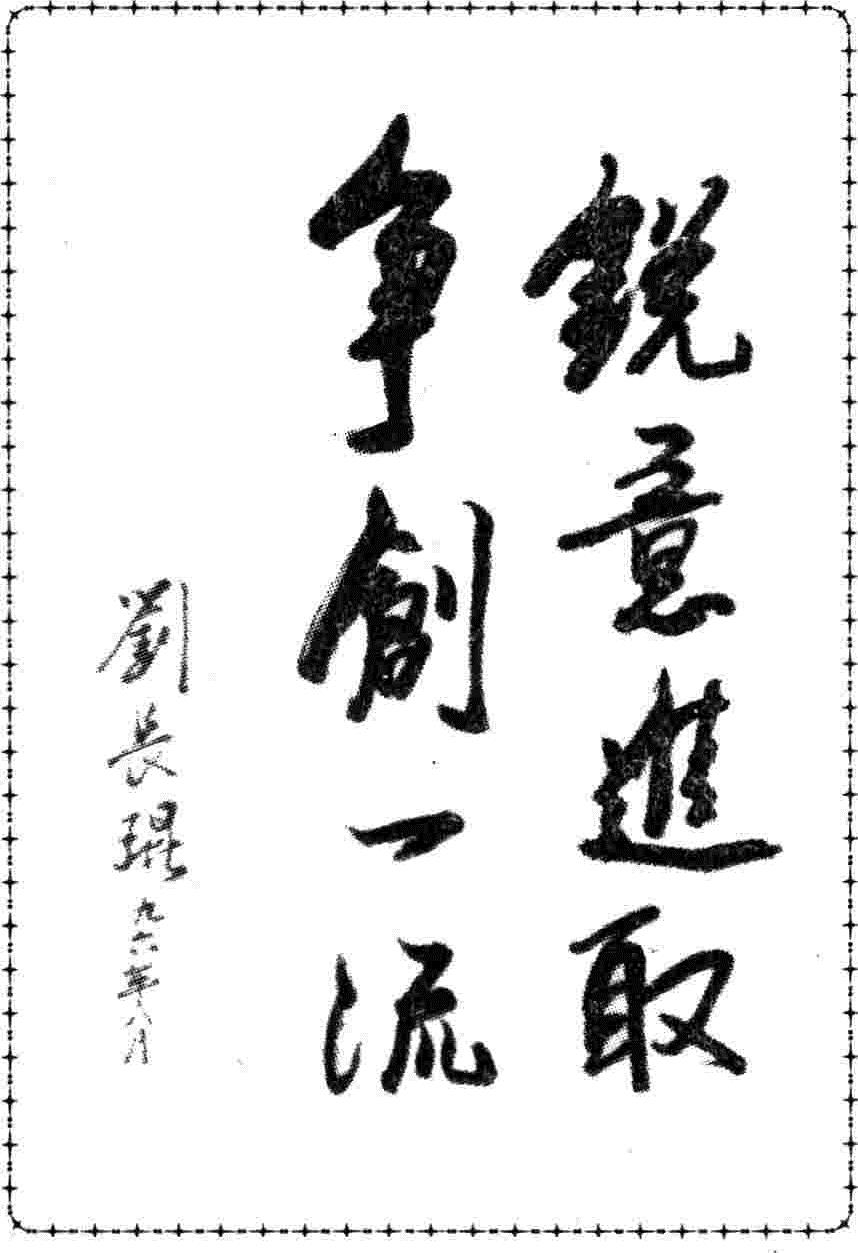 鋭意進取
争創一流
劉長琨
九六年八月